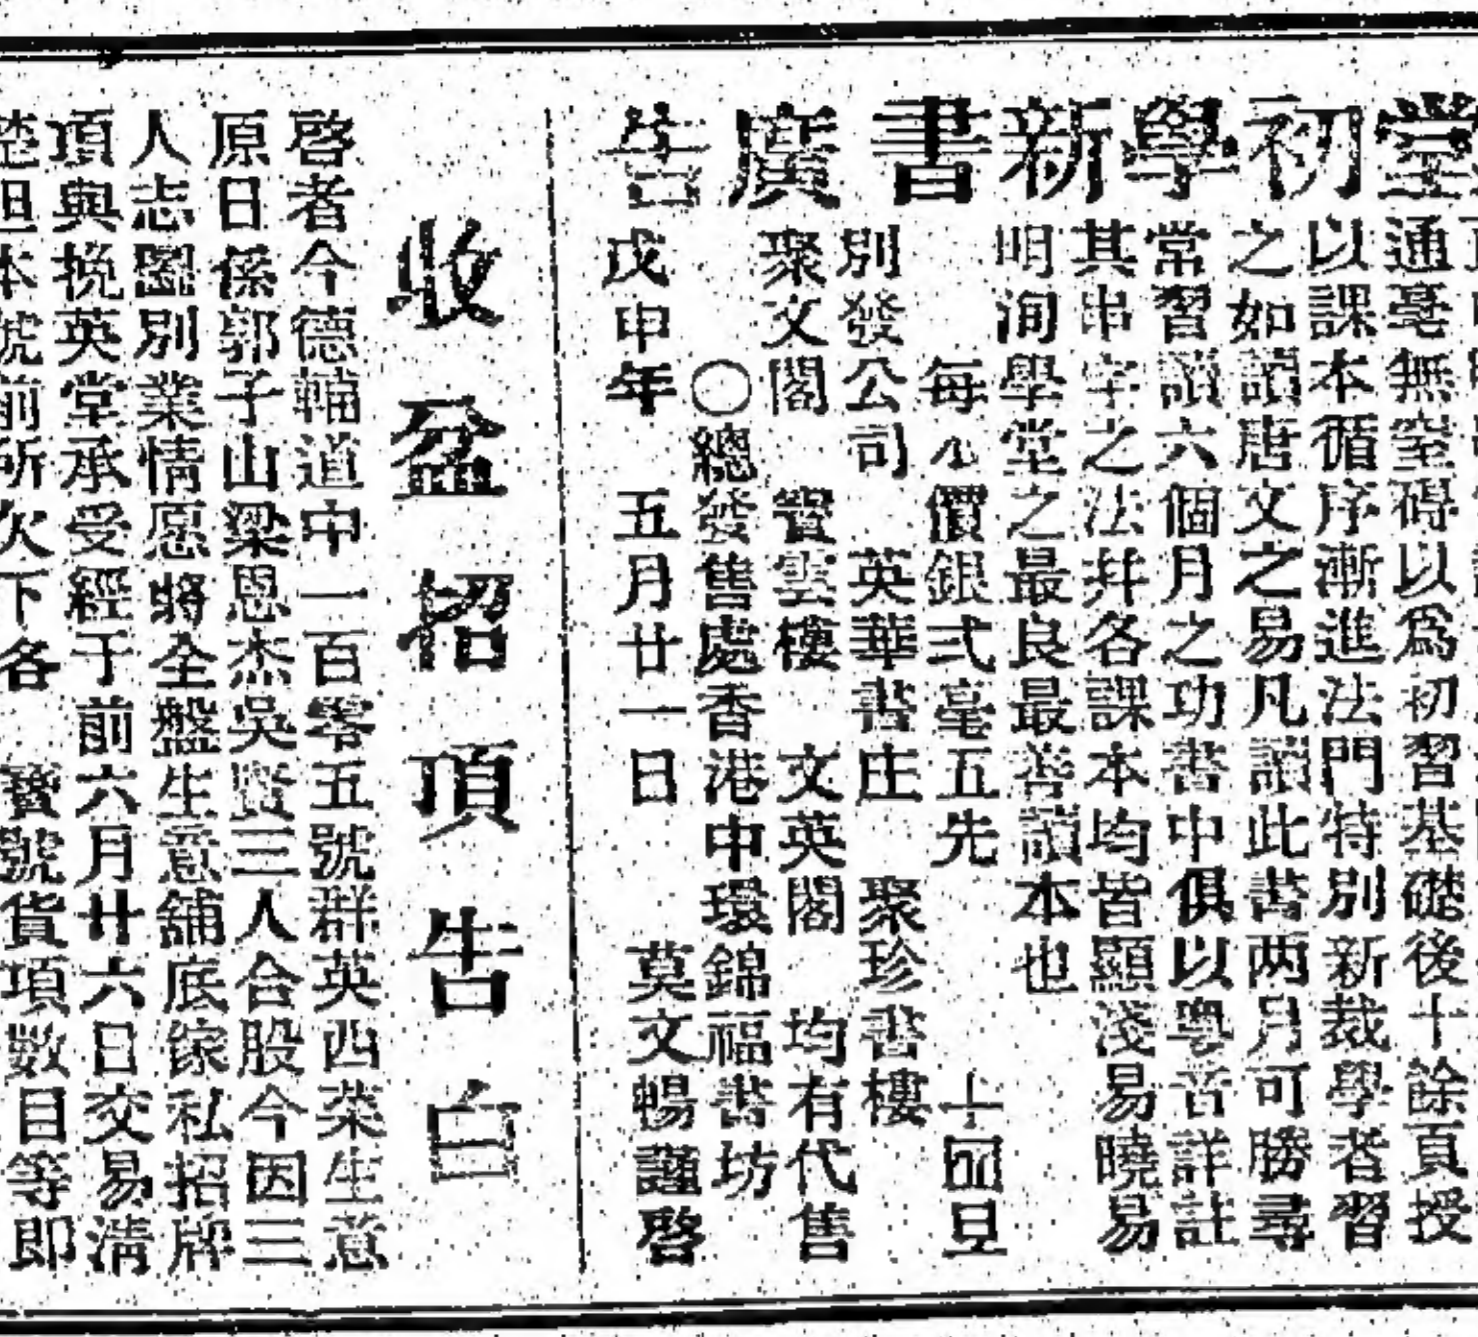 堂初學新書廣告
通毫無窒碍以爲初習基礎後十餘頁授
以課本循序漸進法門特別新裁學者習
之如讀唐文之易凡讀此書两月可勝尋
常習讀六個月之功書中俱以粤音詳註
其串字之法并各課本均皆顯淺易曉易
明洵學堂之最良最善讀本也
每 價銀弍毫五先
別發公司 英華書庄 聚珍書樓
聚文閣 雲樓 文英閣 均有代售
〇總發售處香港中環錦福書坊
戊申年 五月廿一日 莫文暢謹啓
收盆招頂告白
啓者今德輔道中一百零五號群英西菜生意
原日係郭子山梁恩杰吳賢三人合股今因三
人志圖別業情愿將全盤生意舖底傢私招牌
項與挽英堂承受經于前六月廿六日交易清
楚但本號前所欠下各 寶號貨項數目等即